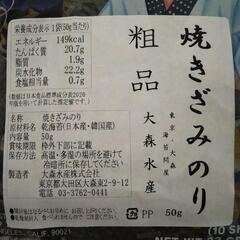 焼きざみのり
東京・大森
海苔問屋
粗品
大森水産
PP
50g
栄養成分表示1袋(50g当たり)
エネルギー 149kcal
たんぱく質 20.7g
脂質 1.9g
炭水化物 22.2g
食塩相当量 0.7g
(数値は日本食品標準成分表2020
年版を用いて計算した推定値)
名称 焼きざみのり
原材料名 乾海苔(日本産・韓国産)
内容量 50g
賞味期限 枠外下部に記載
保存方法 高温・多湿の場所を避けて
冷暗所に保存してください
製造者 大森水産株式会社
東京都大田区大森東2-9-12
電話 03-3762-0441
ANGELES, CALIF. 90021
(10 SH